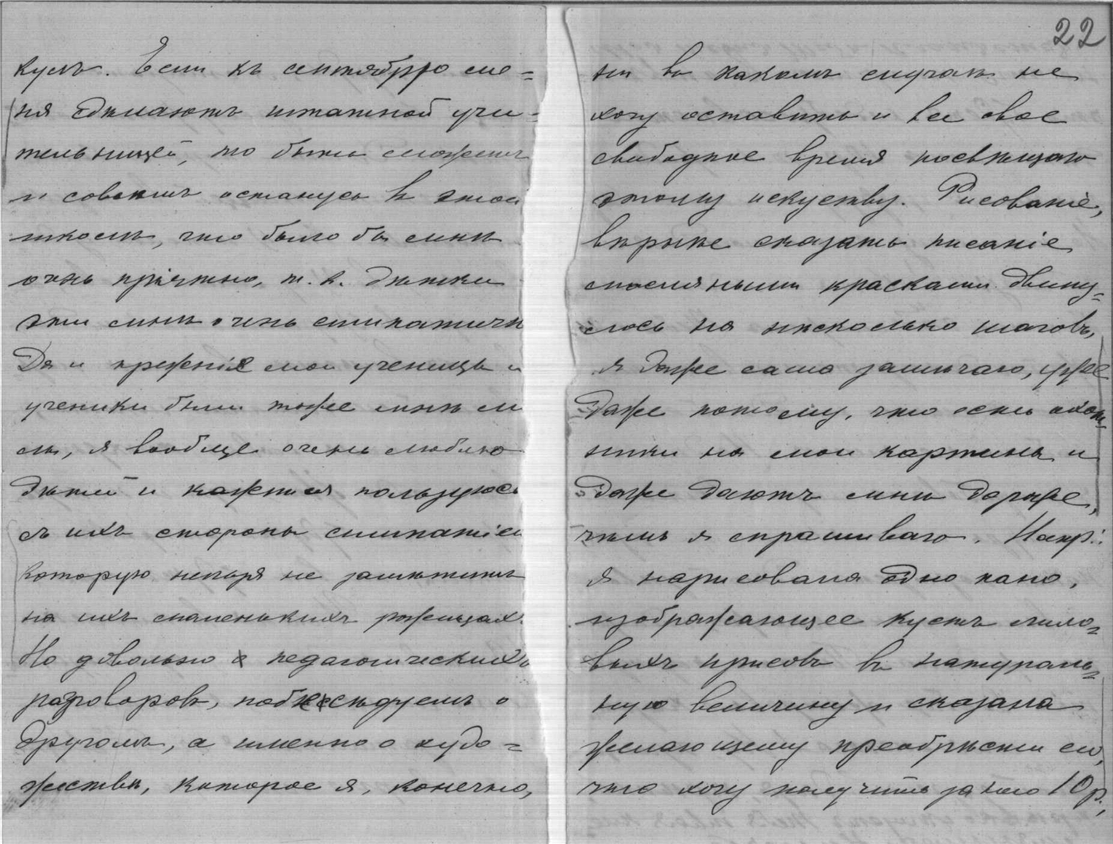 кулъ. Если къ сентябрю ме=
ня сдѣлаютъ штатной учи-
тельницей, то быть можетъ
и совсѣмъ останусь въ этой
школѣ, что было бы мнѣ
очень пріятно, т. к. дѣтки
эти мнѣ очень симпатичн
Да и прежніе мои ученицы и
ученики были тоже мнѣ ми
лы, я вообще очень люблю
дѣтей и кажется пользуюсь
съ ихъ стороны симпатіей
которую нельзя не замѣтить
на ихъ маленькихъ рожицахъ.
Но довольно педагогическихъ
разговоровъ, побесѣдуемъ о
другомъ, а именно о худо=
жествѣ, которое я, конечно,
22
ни въ какомъ случаѣ не
хочу оставить и все свое
свободное время посвящаю
этому искуству. Рисованіе,
вѣрнѣе сказать писаніе
масляными красками двину=
лось на нѣсколько шаговъ,
я даже сама замѣчаю, уже
даже потому, что есть охот
ники на мои картины и
даже даютъ мнѣ дороже,
чѣмъ я спрашиваю. Напр.:
я нарисовала одно пано,
изображающее кустъ лило=
выхъ ирисовъ въ натураль=
ную величину и сказала
желающему преобрѣсти его,
что хочу получить за него 10 р.,